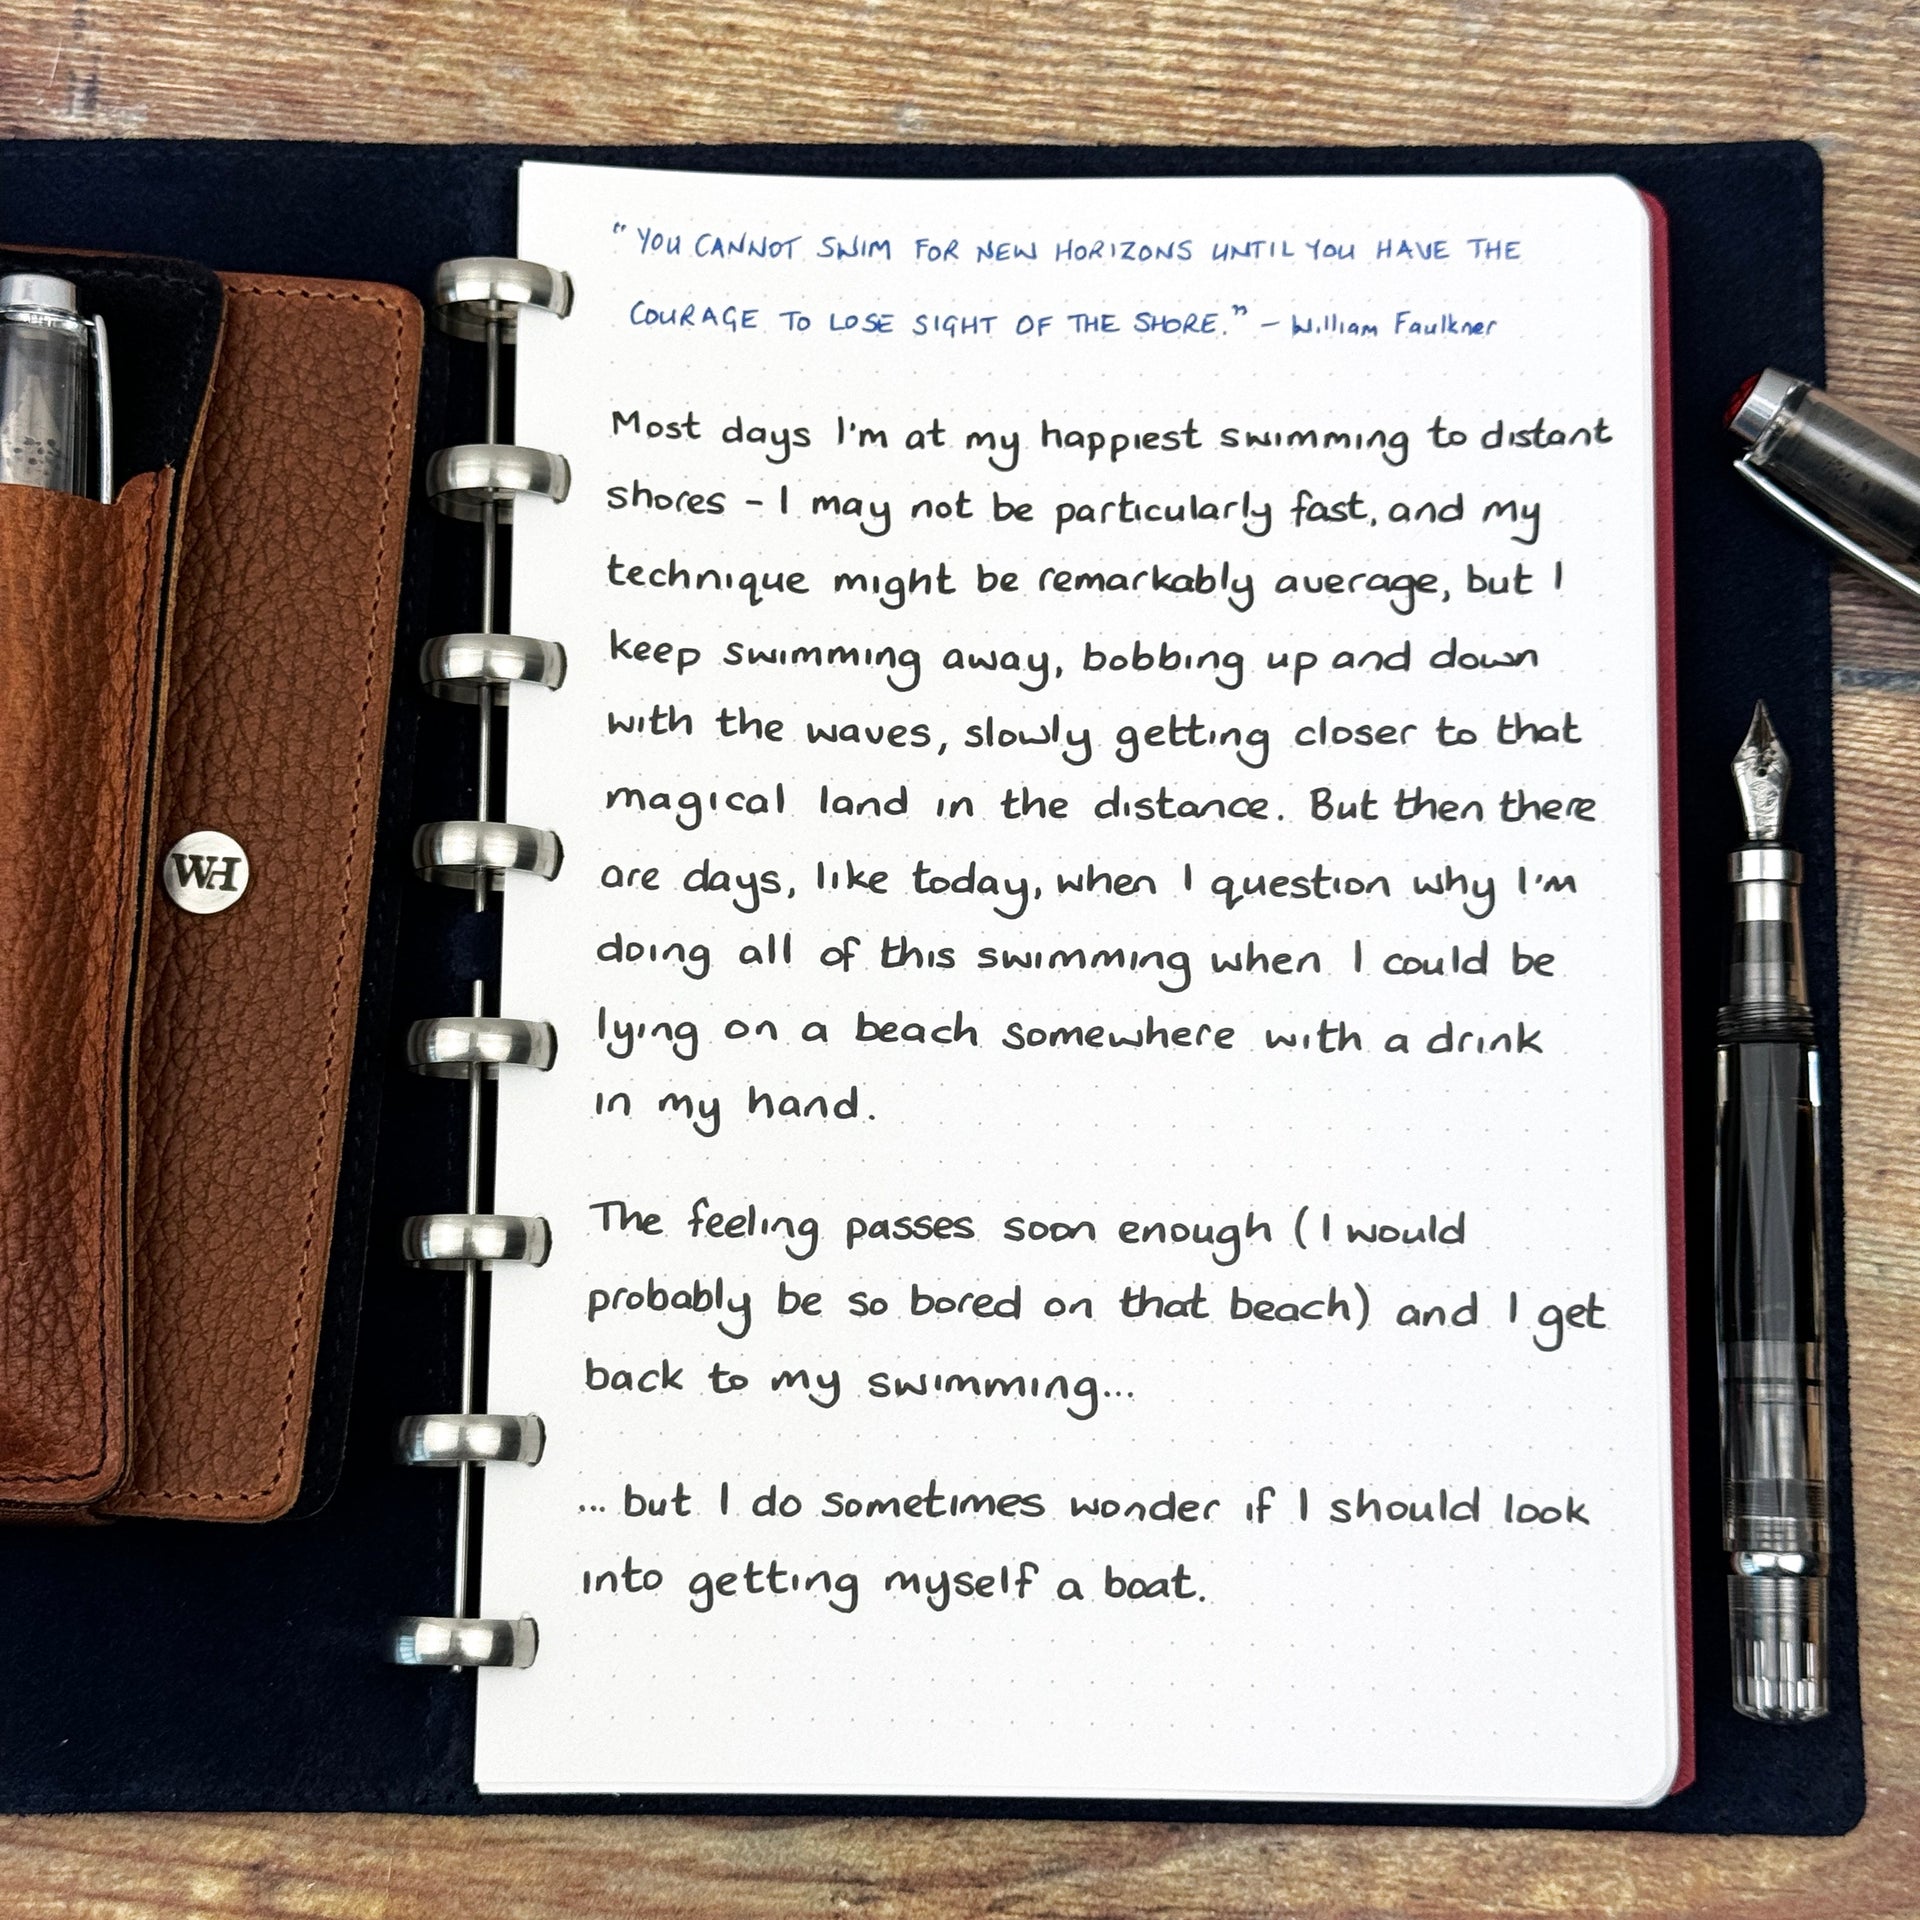 "YOU CANNOT SWIM FOR NEW HORIZONS UNTIL YOU HAVE THE
COURAGE TO LOSE SIGHT OF THE SHORE." – William Faulkner
Most days I'm at my happiest swimming to distant
shores – I may not be particularly fast, and my
technique might be remarkably average, but I
keep swimming away, bobbing up and down
with the waves, slowly getting closer to that
magical land in the distance. But then there
are days, like today, when I question why I'm
doing all of this swimming when I could be
lying on a beach somewhere with a drink
in my hand.
The feeling passes soon enough (I would
probably be so bored on that beach) and I get
back to my swimming...
... but I do sometimes wonder if I should look
into getting myself a boat.
WH